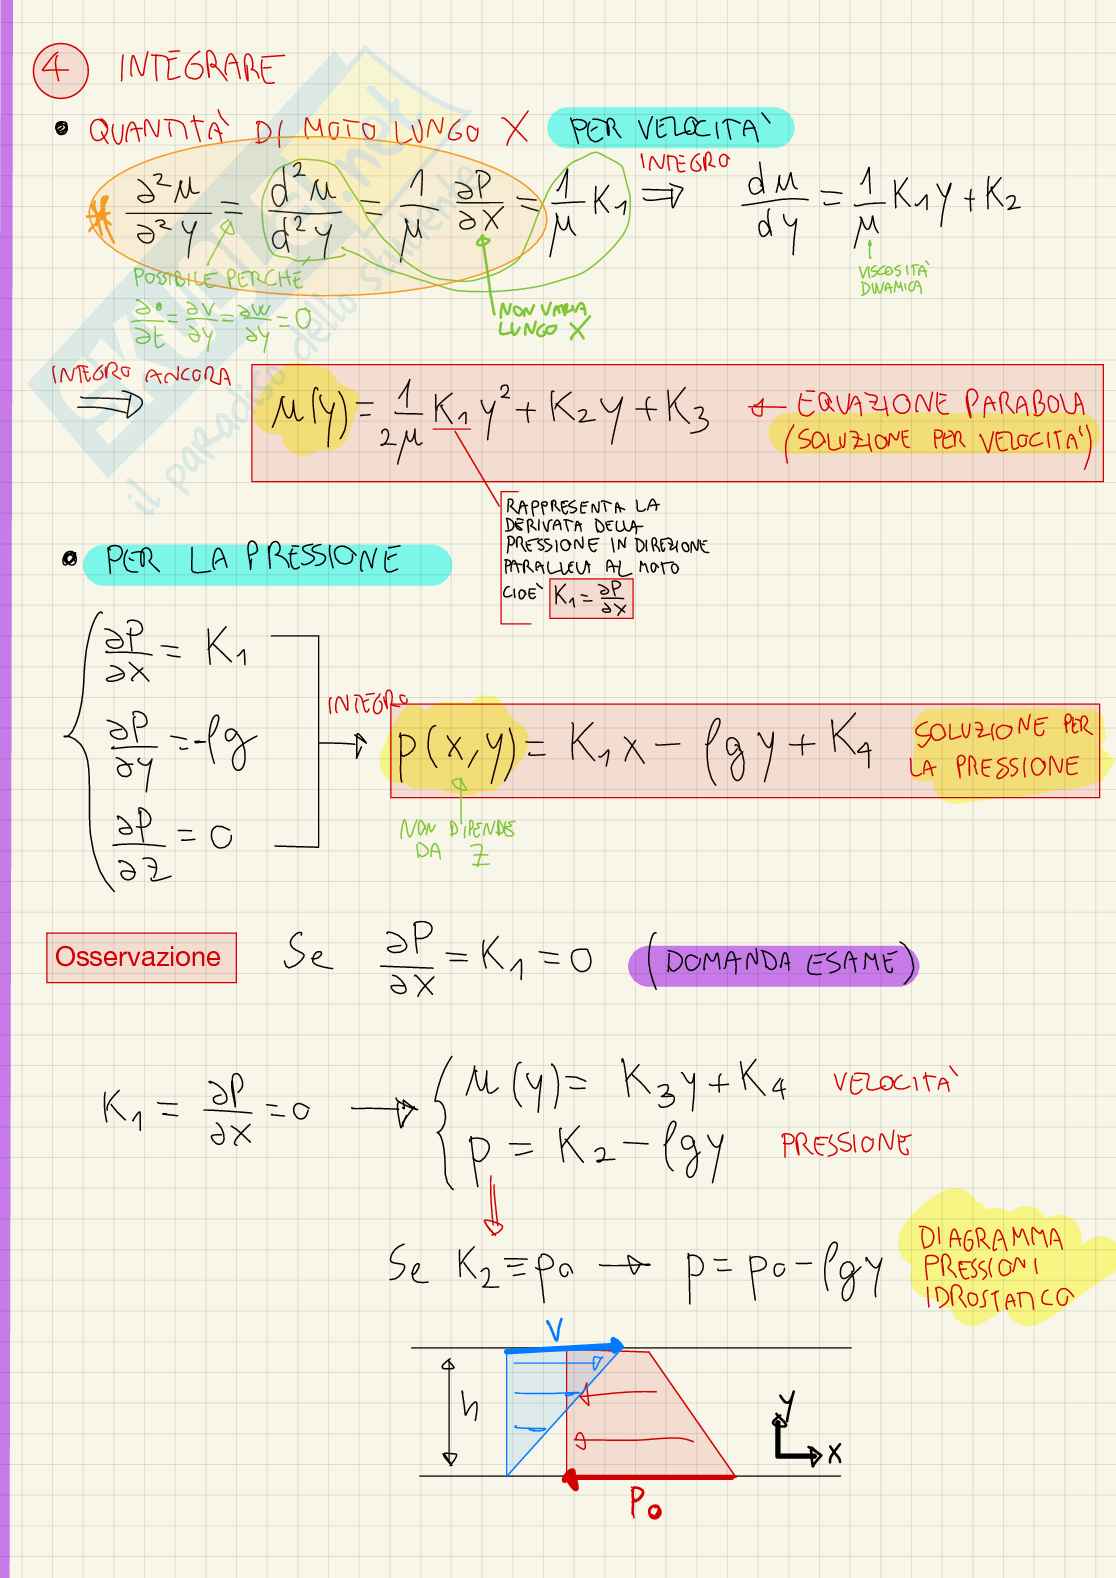 4 INTEGRARE
• QUANTITÀ DI MOTO LUNGO X PER VELOCITÀ
* ∂²u/∂²y = d²u/d²y = 1/μ ∂P/∂x = 1/μ K₁ ⇒ INTEGRO du/dy = 1/μ K₁y + K₂
POSSIBILE PERCHE
∂•/∂t = ∂v/∂y = ∂w/∂y = 0
NON VARIA
LUNGO X
VISCOSITÀ
DINAMICA
INTEGRO ANCORA
⇒ u(y) = 1/2μ K₁ y² + K₂y + K₃ ← EQUAZIONE PARABOLA
(SOLUZIONE PER VELOCITÀ)
RAPPRESENTA LA
DERIVATA DELLA
PRESSIONE IN DIREZIONE
PARALLELA AL MOTO
CIOÈ K₁ = ∂P/∂x
• PER LA PRESSIONE
∂P/∂x = K₁
∂P/∂y = -ρg
∂P/∂z = 0
INTEGRO
→ p(x,y) = K₁x - ρgy + K₄ SOLUZIONE PER
LA PRESSIONE
NON DIPENDE
DA Z
Osservazione Se ∂P/∂x = K₁ = 0 (DOMANDA ESAME)
K₁ = ∂P/∂x = 0 → u(y) = K₃y + K₄ VELOCITÀ
p = K₂ - ρgy PRESSIONE
Se K₂ ≡ p₀ → p = p₀ - ρgy DIAGRAMMA
PRESSIONI
IDROSTATICO
V
h
y
x
P₀
SKUOLA.net
il paradiso dello studente